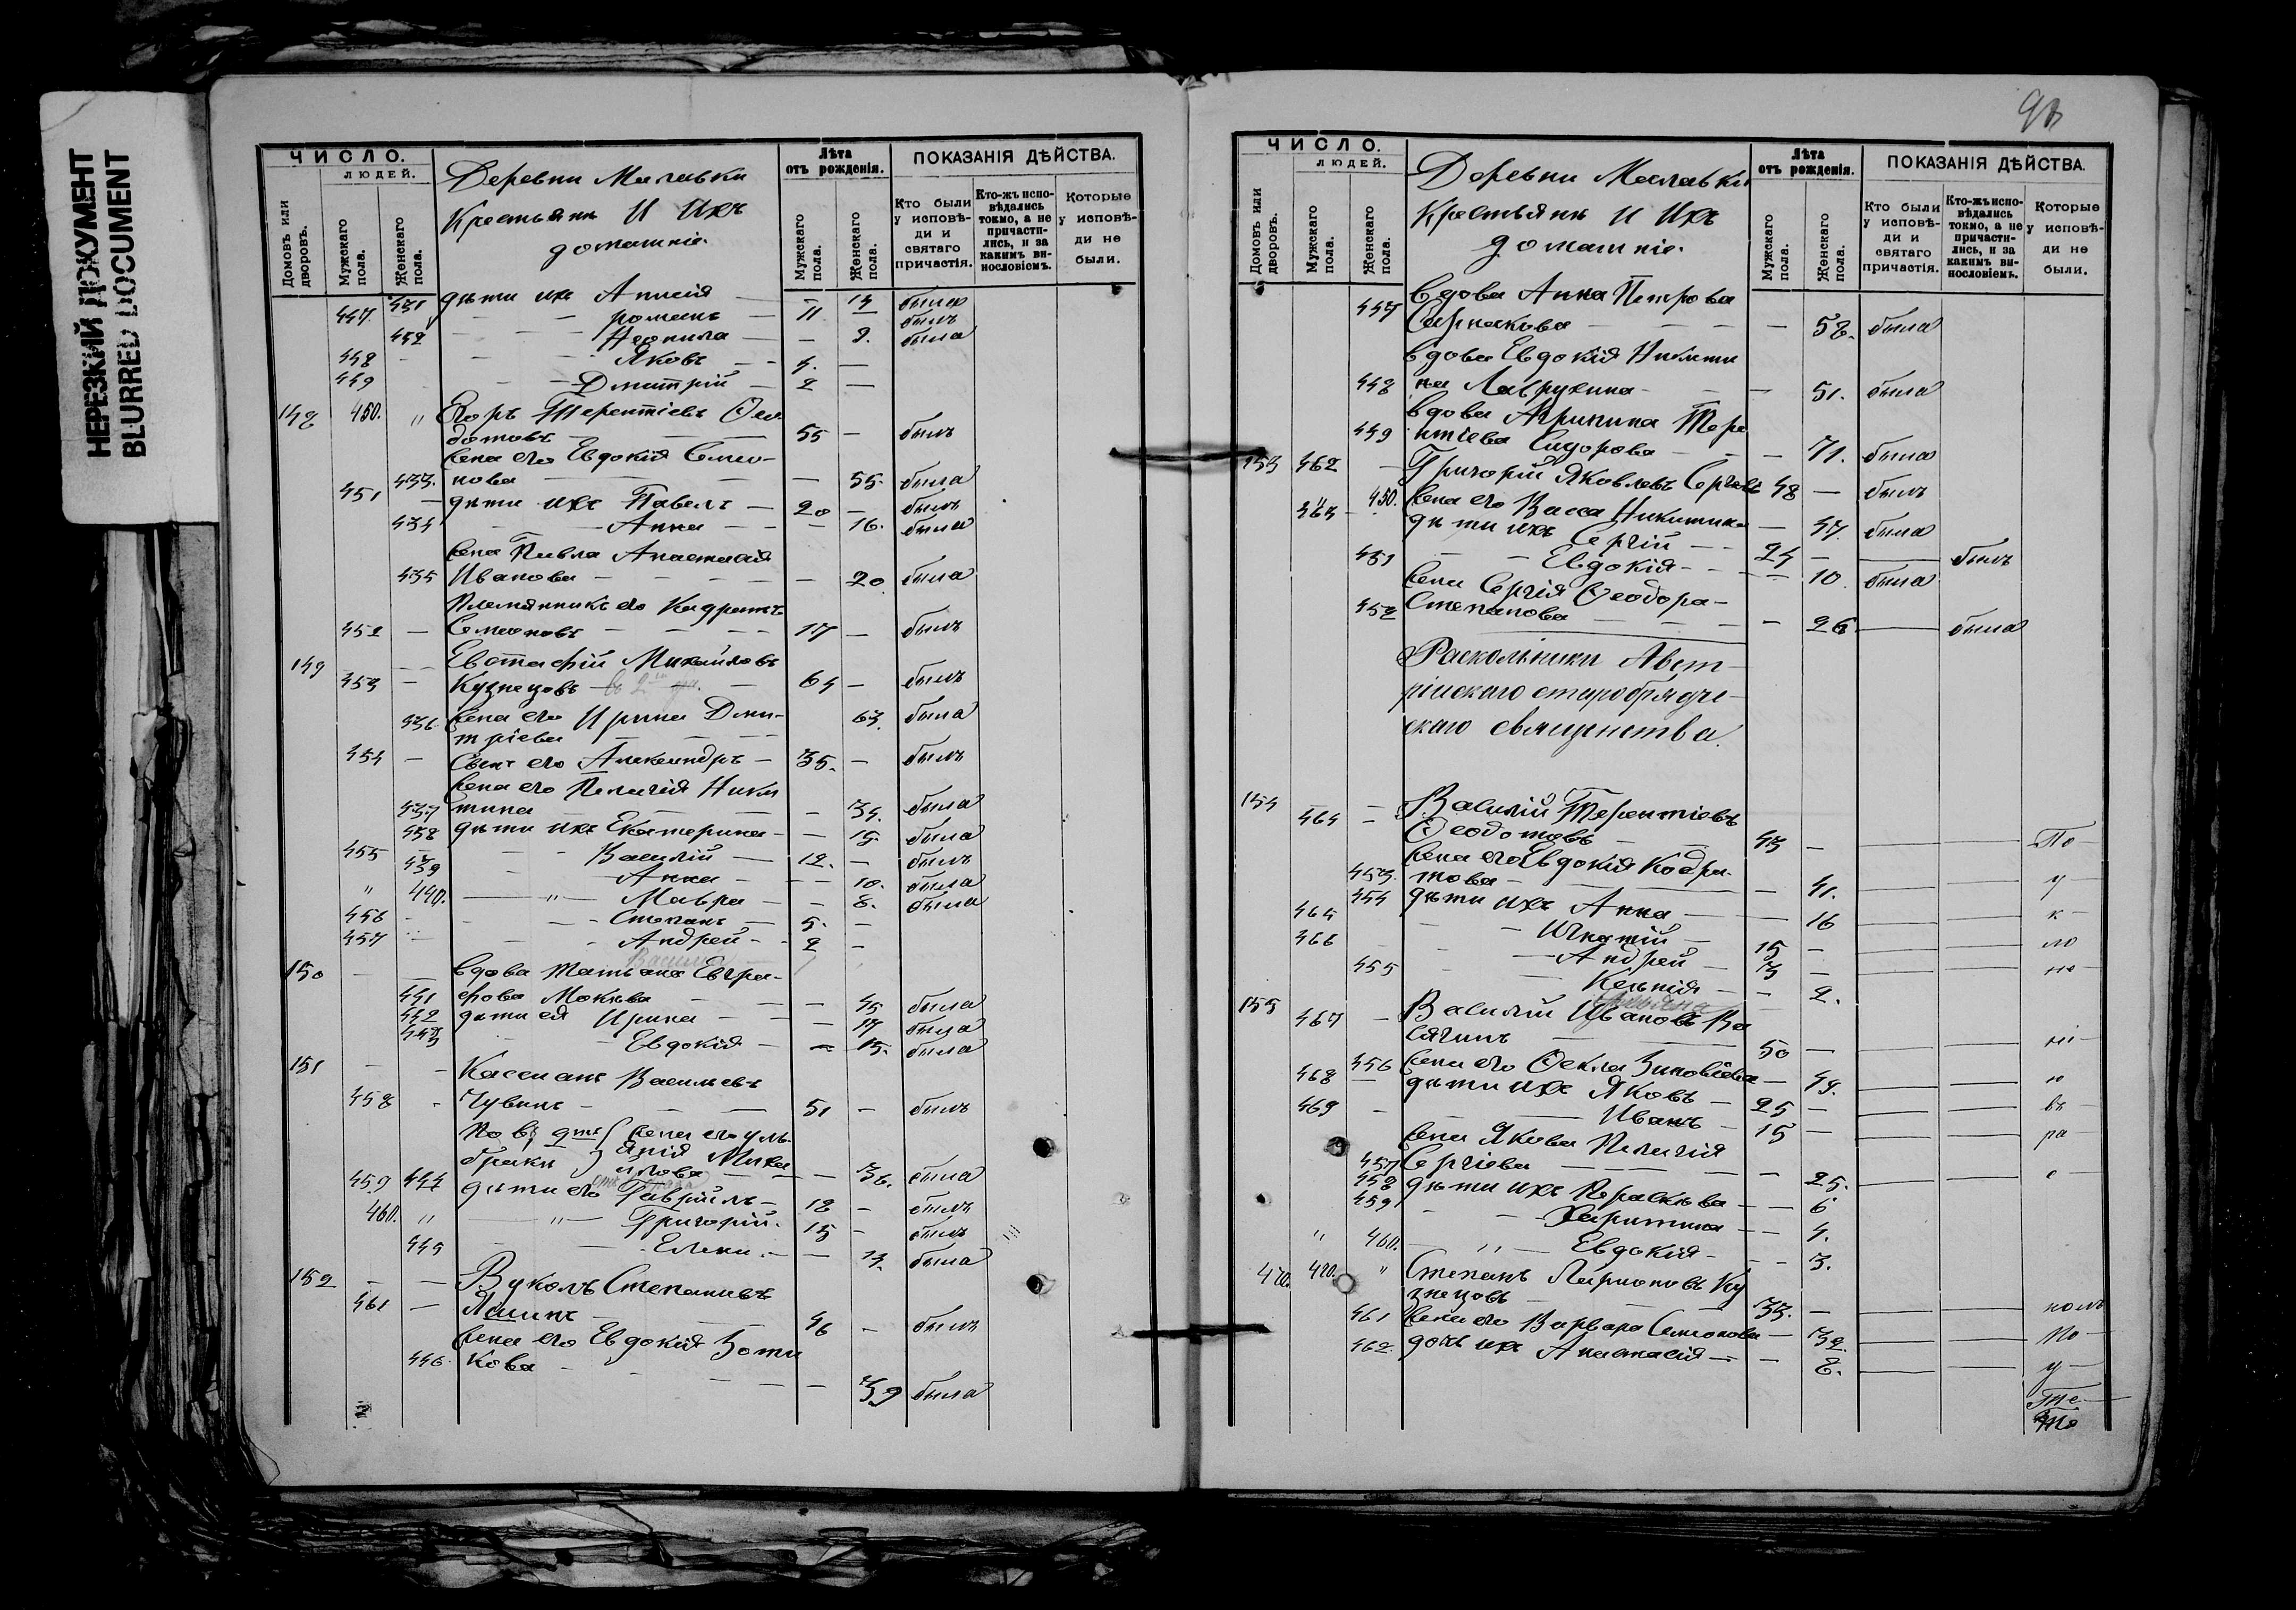 НЕРЕЗКИЙ ДОКУМЕНТ
BLURRED DOCUMENT
ЧИСЛО.
ЛЮДЕЙ.
Домовъ или дворовъ.
Мужскаго пола.
Женскаго пола.
Деревни
Крестьянъ и ихъ
домашніе.
Лѣта отъ рожденія.
Мужскаго пола.
Женскаго пола.
ПОКАЗАНІЯ ДѢЙСТВА.
Кто были у исповѣди и святаго причастія.
Кто-жъ исповѣдались токмо, а не причастились, и за какимъ винословіемъ.
Которые у исповѣди не были.
431 дѣти ихъ Анисія — 14 была
447 романъ — 11 — былъ
432 Неонила — — 9. была
448 Яковъ — 4. —
449 Дмитрій — 2 —
148 450. " Егоръ Терентіевъ Фео
дотовъ — 55 — былъ
жена его Евдокія Семіо-
433. нова — 55. была
451 — дѣти ихъ Павелъ — 20 — былъ
434 Анна — — 16. была
жена Павла Анастасія
435 Иванова — — 20. была
Племянникъ его Кодратъ
452 — Семіоновъ — 17 — былъ
149 Евстафій Михайловъ
453 — Кузнецовъ — 64 — былъ
436 жена его Ирина Дми-
тріева 63. была
454 — Сынъ его Александръ — 35. — былъ
жена его Пелагія Ники
437 тина — 34. была
438 дѣти ихъ Екатерина — — 15. была
455 Василій — 12. — былъ
439 Анна — — 10. была
" 440. — " — Мавра — — 8. была
456 Степанъ — 5. —
457 Андрей — 2 —
150 вдова Татьяна Евгра-
441 фова Мокѣва — 45 была
442 дѣти ея Ирина — 17 была
443 Евдокія — 15. была
151 Кассианъ Васильевъ
458 Чувинъ — 51 — былъ
По 2мъ жена его Уль-
браки янія Миха
459 444 илова — 36. была
дѣти его Гавріилъ — 18 — былъ
460. " — " — Григорій. 15 — былъ
445 Елена. — 14. была
152 — — Вуколъ Степановъ
461 — Яшинъ — 46 — былъ
жена его Евдокія Зоти
446. кова — 39 была
93
ЧИСЛО.
ЛЮДЕЙ.
Домовъ или дворовъ.
Мужскаго пола.
Женскаго пола.
Деревни
Крестьянъ и ихъ
домашніе.
Лѣта отъ рожденія.
Мужскаго пола.
Женскаго пола.
ПОКАЗАНІЯ ДѢЙСТВА.
Кто были у исповѣди и святаго причастія.
Кто-жъ исповѣдались токмо, а не причастились, и за какимъ винословіемъ.
Которые у исповѣди не были.
вдова Анна Петрова
447 — 58. была
вдова Евдокія Никити
448 на Лаврухина — 51. была
вдова Агрипина Тере
449 нтіева Сидорова — 71. была
153 462 — Григорій Яковлевъ 48 — былъ
450. жена его Васса Никитина — 47. была
463 дѣти ихъ Сергій — 24 — — былъ
451 Евдокія — — 10. была
жена Сергія Феодора
452 Степанова — 26. — была
Раскольники Авст-
рійскаго старообрядче-
скаго священства.
154
464 — Василій Терентіевъ
Феодотовъ — 43 — По-
жена его Евдокія Кодра-
453. това — 41. у
454 дѣти ихъ Анна — 16 к
465 Игнатій — 15 — ло
466 Андрей — 3 — не
455 Ксенія — — 2.
155
467 — Василій Ивановъ Ва
сягинъ — 50 — ні
456 жена его Фекла Зиновіева — 49. ю
468 дѣти ихъ Яковъ — 25 — въ
469 Иванъ — 15 — ра
жена Якова Пелагія
457 Сергіева — 25. с
458 дѣти ихъ Параскѣва — — 6
459 Харитина — 4.
" 460. — " — Евдокія — 3.
470. 470. " Степанъ Ларионовъ Ку
знецовъ — 33. — комъ
461 жена его Варвара Семионова — 32. По
462 дочь ихъ Анастасія — 8. у